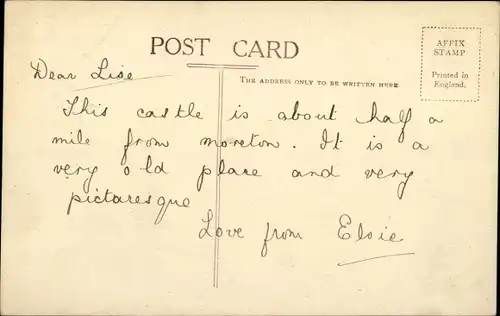 POST CARD
AFFIX
STAMP
Printed in
England.
THE ADDRESS ONLY TO BE WRITTEN HERE.
Dear Lise
This castle is about half a
mile from moreton. It is a
very old place and very
picturesque
Love from Elsie